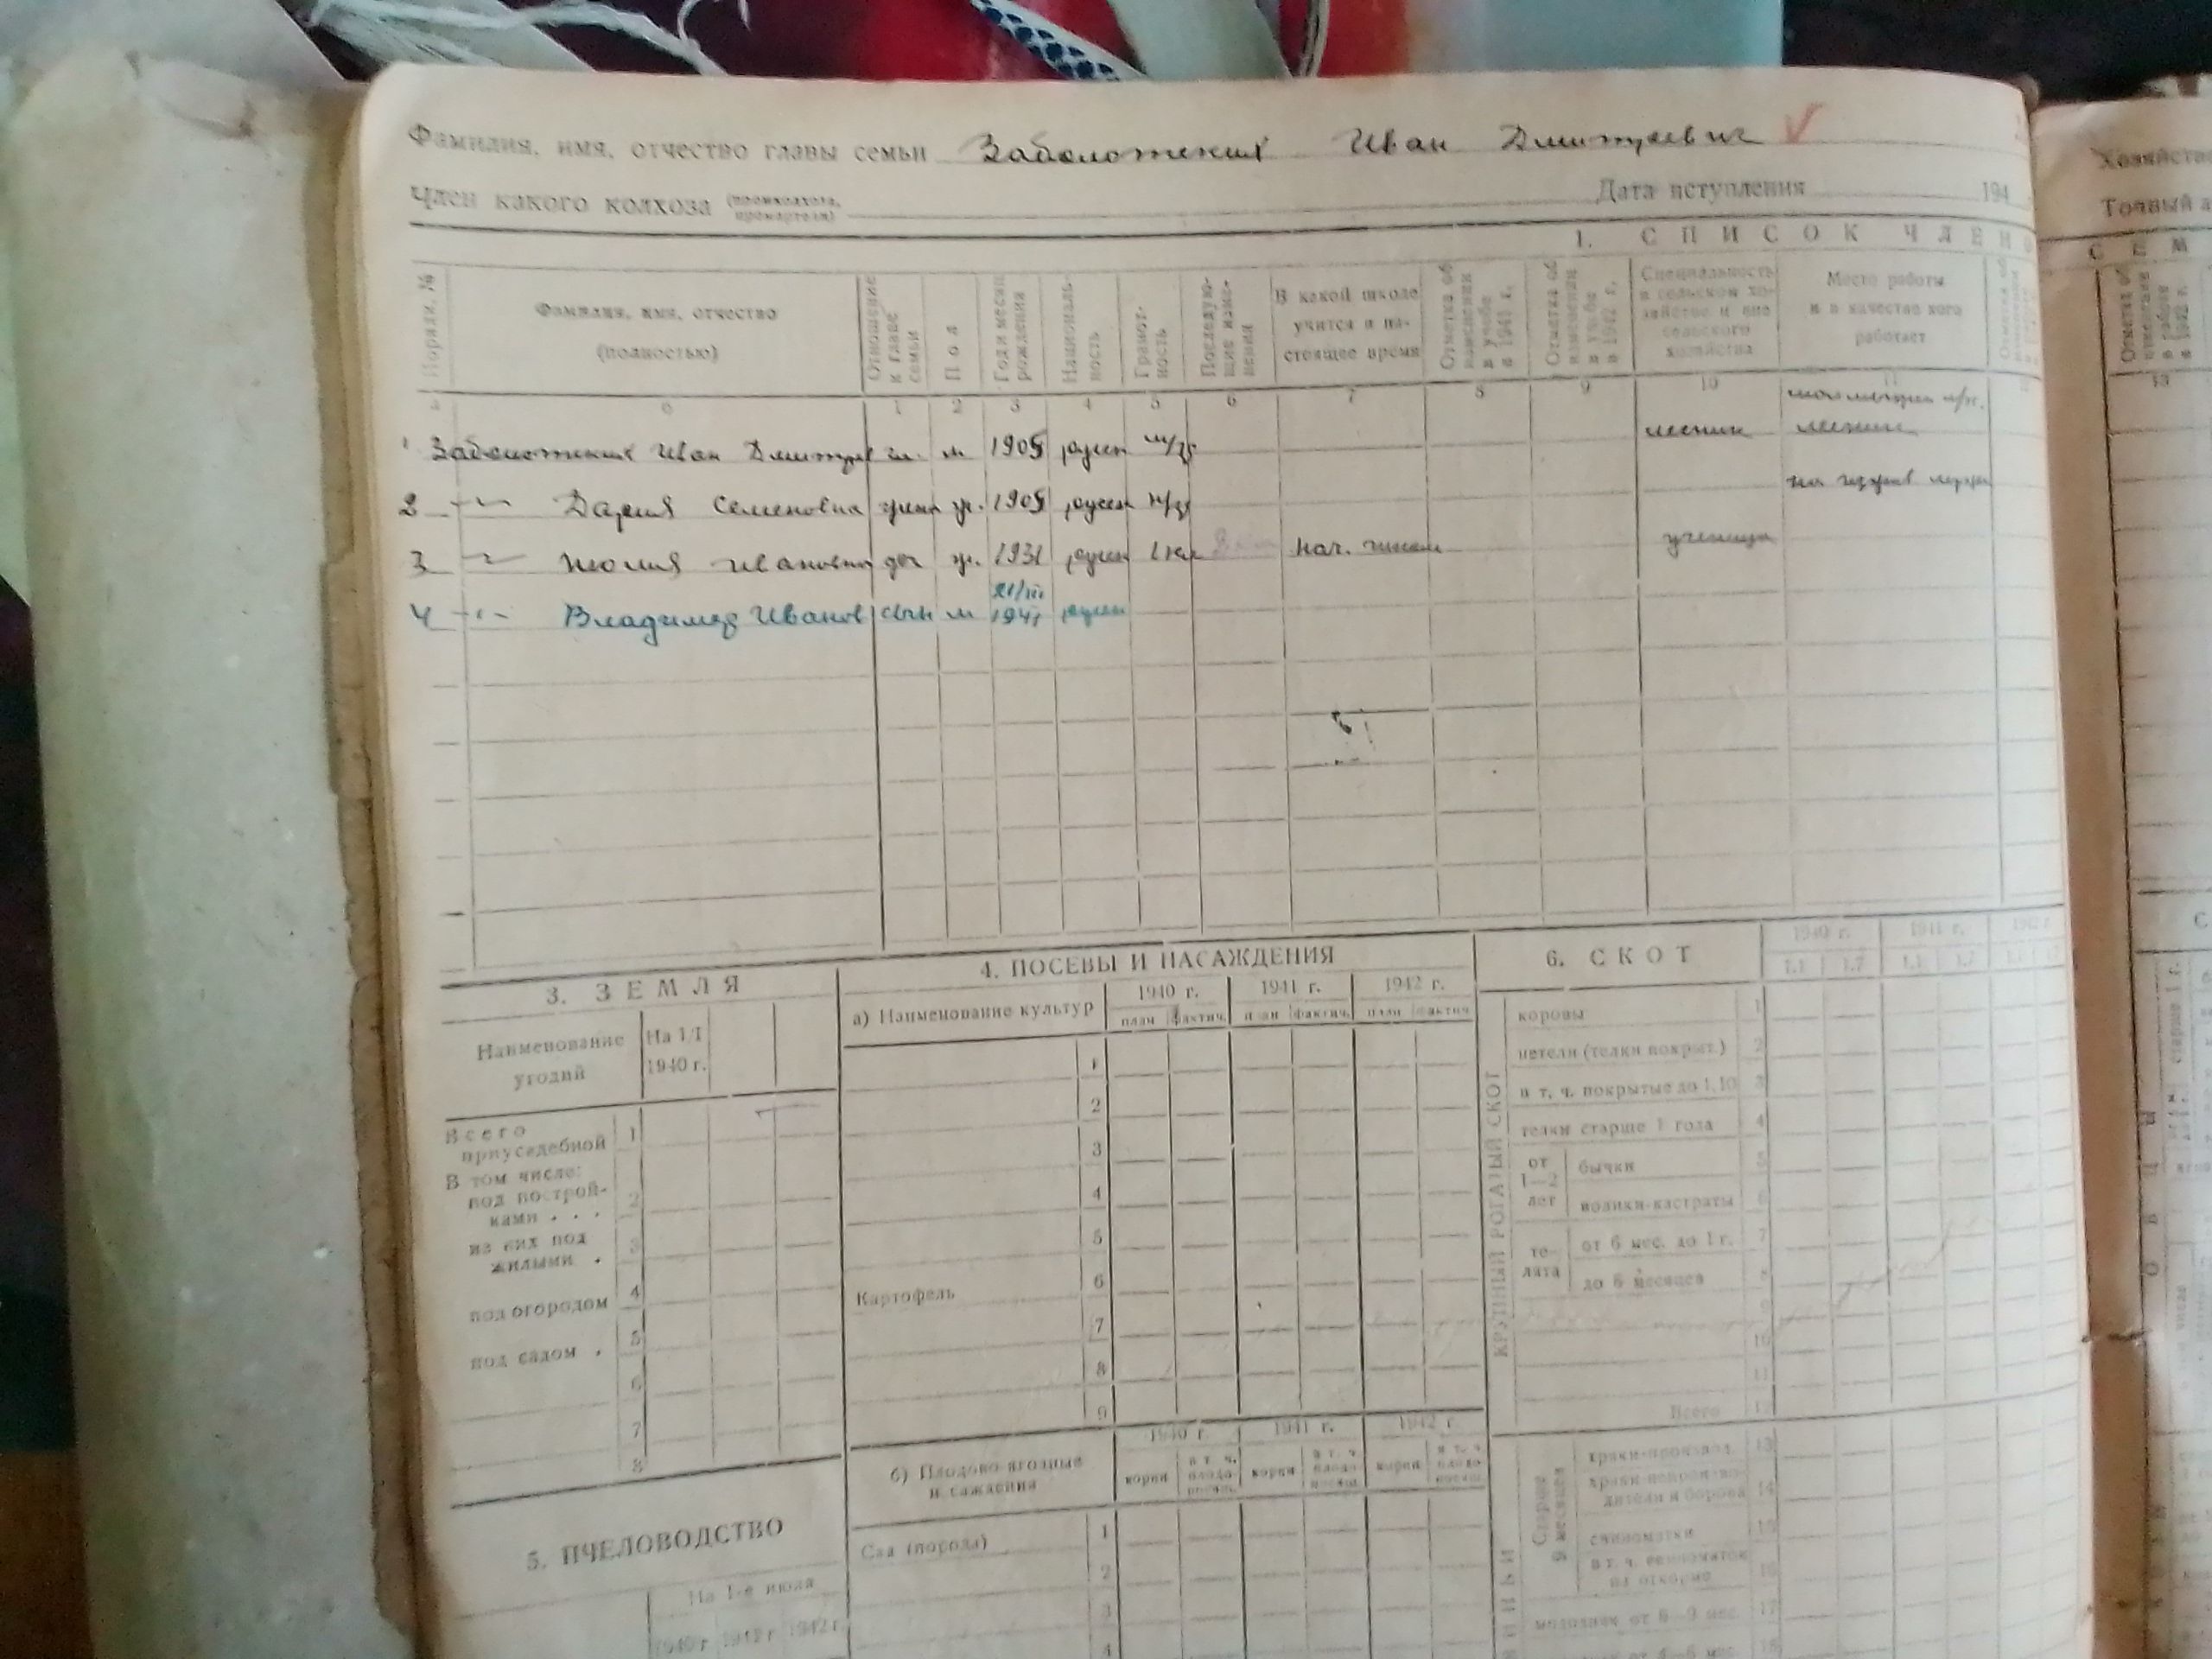 Фамилия, имя, отчество главы семьи Заболотский Иван Дмитриевич
Член какого колхоза (промколхоза, промартели) Дата вступления 194
1. СПИСОК ЧЛЕНО
Порядк. № Фамилия, имя, отчество (полностью) Отношение к главе семьи Пол Год и месяц рождения Национальность Грамотность Последующие изменения В какой школе учится в настоящее время Отметка об изменении в учебе в 1941 г. Отметка об изменении в учебе в 1942 г. Специальность в сельском хозяйстве и вне сельского хозяйства Место работы и в качестве кого работает
а б 1 2 3 4 5 6 7 8 9 10 11
1 Заболотский Иван Дмитр гл. м 1905 русск м/гр лесник
2 -"- Дария Семеновна жена ж. 1905 русск н/гр
3 -"- Юлия Ивановна доч ж. 1931 русск 1 кл нач. школа ученица
21/III
4 -"- Владимир Иванов сын м 1941 русск
3. ЗЕМЛЯ
Наименование угодий На 1/I 1940 г.
Всего приусадебной 1
В том числе:
под постройками . . . 2
из них под жилыми . 3
под огородом 4
под садом . 5
6
7
8
5. ПЧЕЛОВОДСТВО
На 1-е июля
1940 г. 1941 г. 1942 г.
4. ПОСЕВЫ И НАСАЖДЕНИЯ
а) Наименование культур 1940 г. 1941 г. 1942 г.
план фактич. план фактич. план фактич
1
2
3
4
5
Картофель 6
7
8
9
б) Плодово-ягодные насаждения 1940 г. 1941 г. 1942 г.
корни в т. ч. плодонос. корни в т. ч. плодонос. корни в т. ч. плодонос.
Сад (порода) 1
2
3
4
6. СКОТ 1940 г. 1941 г. 1942 г.
1.I 1.7 1.I 1.7
КРУПНЫЙ РОГАТЫЙ СКОТ
коровы 1
нетели (телки покрыт.) 2
в т. ч. покрытые до 1.10 3
телки старше 1 года 4
от 1—2 лет бычки 5
волики-кастраты 6
телята от 6 мес. до 1 г. 7
до 6 месяцев 8
9
10
11
Всего 12
Старше 9 месяцев
хряки-производ. 13
хряки-непроизводители и борова 14
свиноматки 15
в т. ч. свиноматок на откорме 16
молодняк от 6—9 мес. 17
от 4—6 мес. 18
Хозяйство
Точный а
СЕМ
13